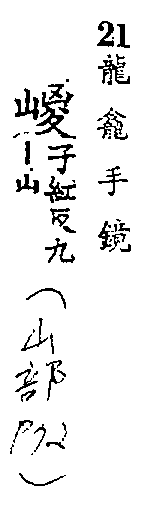 21龍龕手鏡
嵕子紅反九丨山
(山部P72)